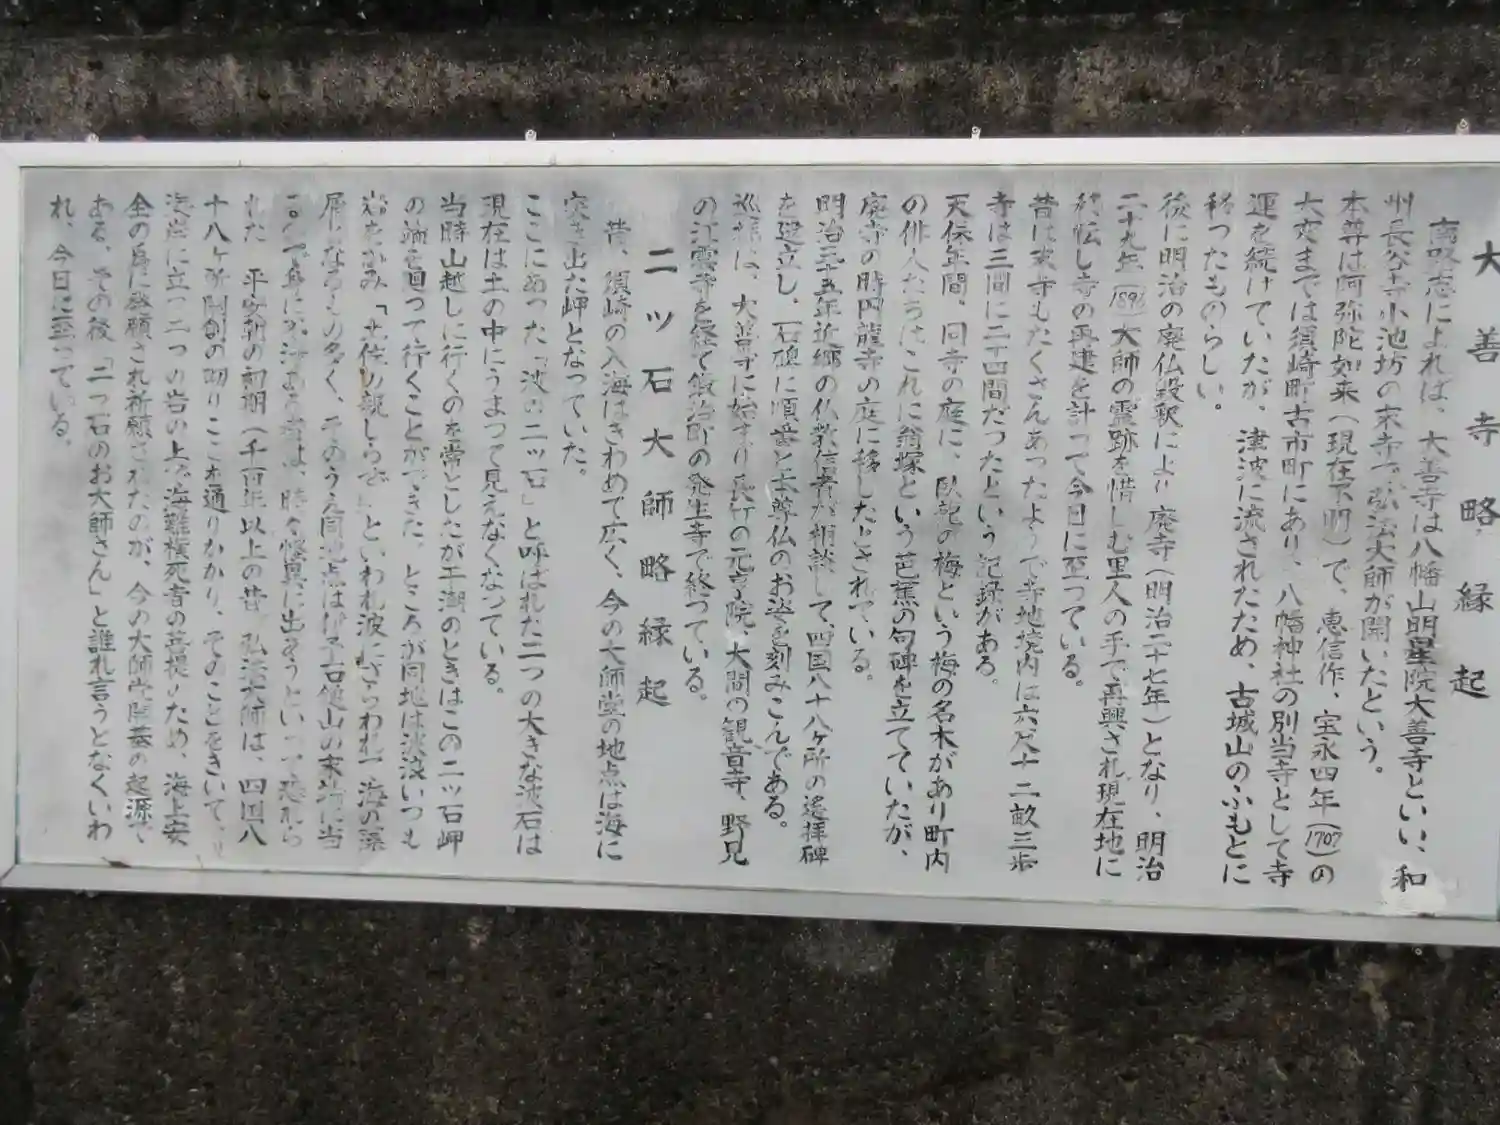 大善寺略縁起
南路志によれば、大善寺は八幡山明星院大善寺といい、和
州長谷寺小池坊の末寺で弘法大師が開いたという。
本尊は阿弥陀如来(現在不明)で、恵信作、宝永四年(1707)の
大変までは須崎町古市町にあり、八幡神社の別当寺として寺
運を続けていたが、津波に流されたため、古城山のふもとに
移ったものらしい。
後に明治の廃仏毀釈により廃寺(明治二十七年)となり、明治
二十九年(1896)大師の霊跡を惜しむ里人の手で再興され現在地に
移転し寺の再建を計って今日に至っている。
昔は末寺もたくさんあったようで寺地境内は六反十二畝三歩
寺は三間に二十四間だったという記録がある。
天保年間、同寺の庭に、臥龍の梅という梅の名木があり町内
の俳人たちはこれに翁塚という芭蕉の句碑を立てていたが、
廃寺の時円龍寺の庭に移したとされている。
明治三十五年近郷の仏教信者が相談して、四国八十八ヶ所の遙拝碑
を建立し、石碑に順番と本尊仏のお姿を刻みこんである。
巡拝は、大善寺に始まり長竹の元亨院、大間の観音寺、野見
の江雲寺を経て鍛治町の発生寺で終っている。
二ツ石大師略縁起
昔、須崎の入海はきわめて広く、今の大師堂の地点は海に
突き出た岬となっていた。
ここにあった「波の二ツ石」と呼ばれた二つの大きな波石は
現在は土の中にうまって見えなくなっている。
当時山越しに行くのを常としたが干潮のときはこの二ツ石岬
の端を回って行くことができた。ところが同地は波浅いつも
岩をかみ「土佐の親しらず」といわれ波にさらわれて海の藻
屑となるもの多く、そのうえ同地点は石鎚山の末端に当
るので身に汚れある者は、時々怪異に出あうといって恐れら
れた 平安朝の初期(千百年以上の昔)弘法大師は、四国八
十八ヶ所開創の砌りここを通りかかり、そのことをきいて、
海岸に立つ二つの岩の上で海難横死者の菩提のため、海上安
全の為に発願され祈願されたのが、今の大師堂開基の起源で
ある。その後「二つ石のお大師さん」と誰れ言うとなくいわ
れ、今日に至っている。